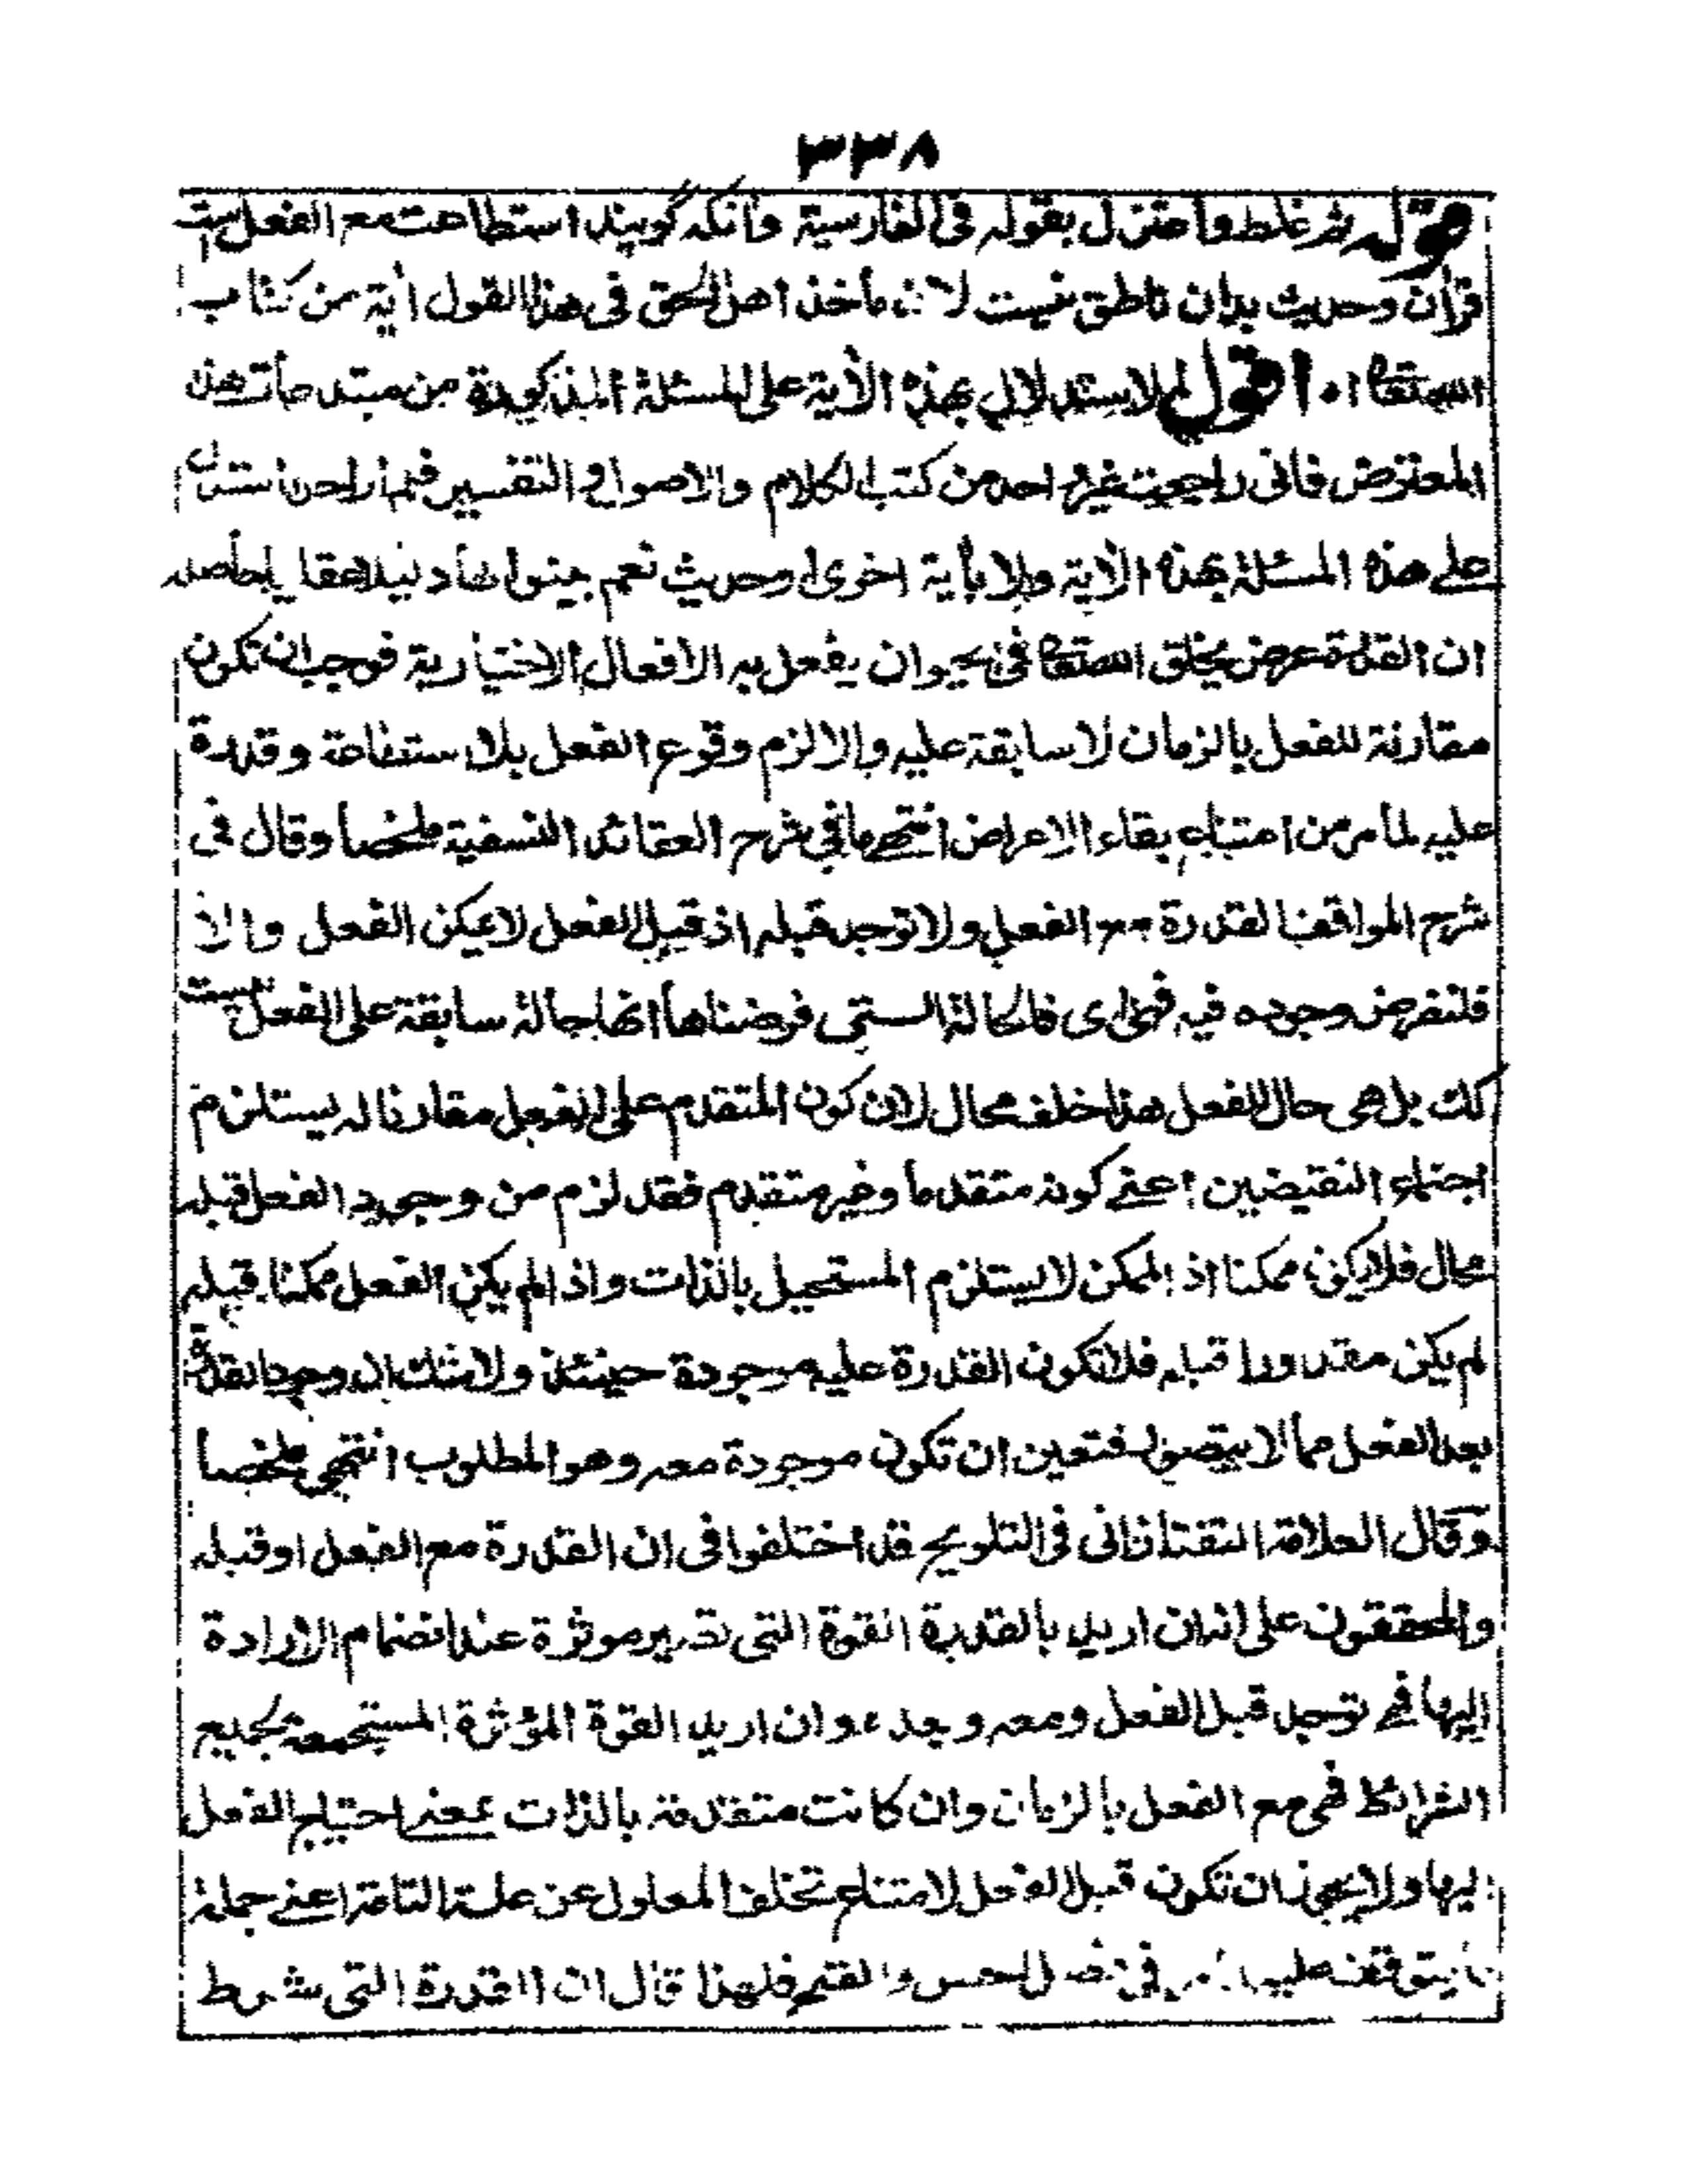 ٣٣٨
قوله ثم غلط واعتزل بقوله فى الفارسية وآنكه گويند استطاعت مع الفعل ست
قرآن وحديث بدان ناطق نيست لان مأخذ اهل الحق فى هذا القول آية من كتاب
الله تعالى اه اقول الاستدلال بهذه الآية على المسئلة المذكورة من مبتدعات هذا
المعترض فانى راجعت غير واحد من كتب الكلام والاصول والتفسير فلم ار احدا استدل
على هذه المسئلة بهذه الآية ولا بآية اخرى او حديث نعم بينوا لها دليلا عقليا حاصله
ان القدرة عرض يخلق الله تعالى فى الحيوان يفعل به الافعال الاختيارية فوجب ان تكون
مقارنة للفعل بالزمان لا سابقة عليه والا لزم وقوع الفعل بلا استطاعة وقدرة
عليه لما مر من امتناع بقاء الاعراض انتهى ما فى شرح العقائد النسفية ملخصا وقال فى
شرح المواقف القدرة مع الفعل ولا توجد قبله اذ قبل الفعل لا يمكن الفعل والا
فلنفرض وجوده فيه فهى اى فالحالة التى فرضناها انها حالة سابقة على الفعل ليست
كك بل هى حال الفعل هذا خلف محال لان كون المتقدم على الفعل مقارنا له يستلزم
اجتماع النقيضين اعنى كونه متقدما وغير متقدم فقد لزم من وجود الفعل قبله
محال فلا يكون ممكنا اذ الممكن لا يستلزم المستحيل بالذات واذا لم يكن الفعل ممكنا قبله
لم يكن مقدورا قبله فلا تكون القدرة عليه موجودة حينئذ ولا شك ان وجود القدرة
بعد الفعل مما لا يتصور فتعين ان تكون موجودة معه وهو المطلوب انتهى ملخصا
وقال العلامة التفتازانى فى التلويح قد اختلفوا فى ان القدرة مع الفعل او قبله
والمحققون على انه ان اريد بالقدرة القوة التى تصير موثرة عند انضمام الارادة
اليها فهى توجد قبل الفعل ومعه وبعده وان اريد القوة المؤثرة المستجمعة بجميع
الشرائط فهى مع الفعل بالزمان وان كانت متقدمة بالذات بمعنى احتياج الفعل
اليها ولا يجوز ان تكون قبل الفعل لامتناع تخلف المعلول عن علته التامة اعنى جملة
ما يتوقف عليه فى فصل الحسن والقبح فلهذا قال ان القدرة التى شرط